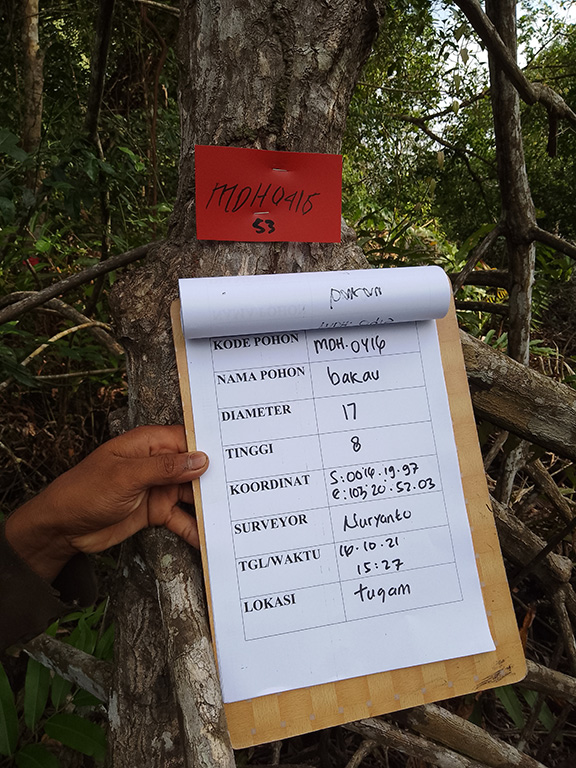 MDH0416
53
KODE POHON MDH.0416
NAMA POHON bakau
DIAMETER 17
TINGGI 8
KOORDINAT S:00:14.19.97
E:103:20.52.03
SURVEYOR Nuryanto
TGL/WAKTU 16.10.21
15:27
LOKASI tugam